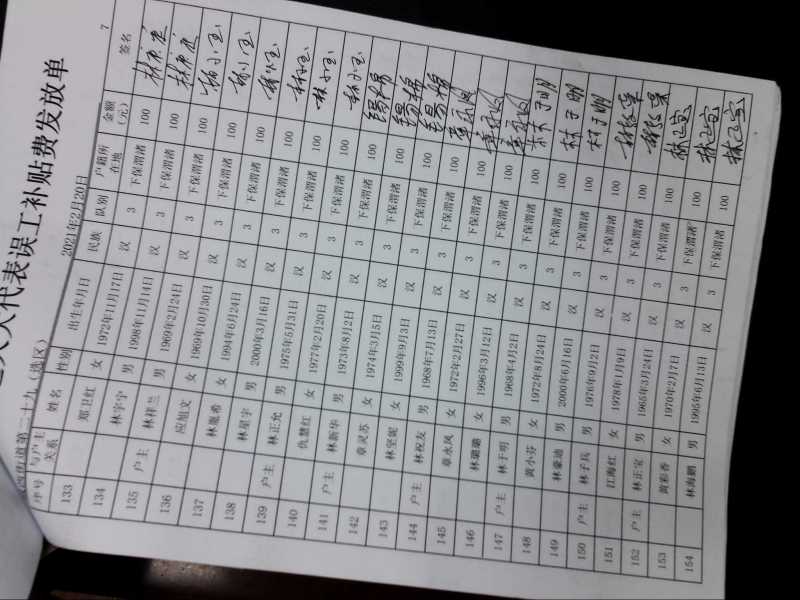 大代表误工补贴费发放单
街道第二十九（选区） 2021年2月20日 7
序号 与户主关系 姓名 性别 出生年月日 民族 队别 户籍所在地 金额（元） 签名
133 郑卫红 女 1972年11月17日 汉 3 下保渭渚 100
134 林宇宁 男 1998年11月14日 汉 3 下保渭渚 100
135 户主 林祥兰 男 1969年2月24日 汉 3 下保渭渚 100
136 应旭文 女 1969年10月30日 汉 3 下保渭渚 100
137 林胤希 女 1994年6月24日 汉 3 下保渭渚 100
138 林星宇 男 2000年3月16日 汉 3 下保渭渚 100
139 户主 林正允 男 1975年5月31日 汉 3 下保渭渚 100
140 仇慧红 女 1977年2月20日 汉 3 下保渭渚 100
141 户主 林新华 男 1973年8月2日 汉 3 下保渭渚 100
142 章灵苏 女 1974年3月5日 汉 3 下保渭渚 100
143 林坚妮 女 1999年9月3日 汉 3 下保渭渚 100
144 户主 林祝友 男 1968年7月13日 汉 3 下保渭渚 100
145 章水凤 女 1972年2月27日 汉 3 下保渭渚 100
146 林璐璐 女 1996年3月12日 汉 3 下保渭渚 100
147 户主 林于明 男 1968年4月2日 汉 3 下保渭渚 100 林于明
148 黄小芬 女 1972年8月24日 汉 3 下保渭渚 100 林于明
149 林豪迪 男 2000年6月16日 汉 3 下保渭渚 100 林于明
150 户主 林子兵 男 1976年9月2日 汉 3 下保渭渚 100
151 江海红 女 1978年1月9日 汉 3 下保渭渚 100
152 户主 林正宝 男 1965年3月24日 汉 3 下保渭渚 100 林正宝
153 黄彩香 女 1970年2月7日 汉 3 下保渭渚 100 林正宝
154 林海鹏 男 1995年6月13日 汉 3 下保渭渚 100 林正宝